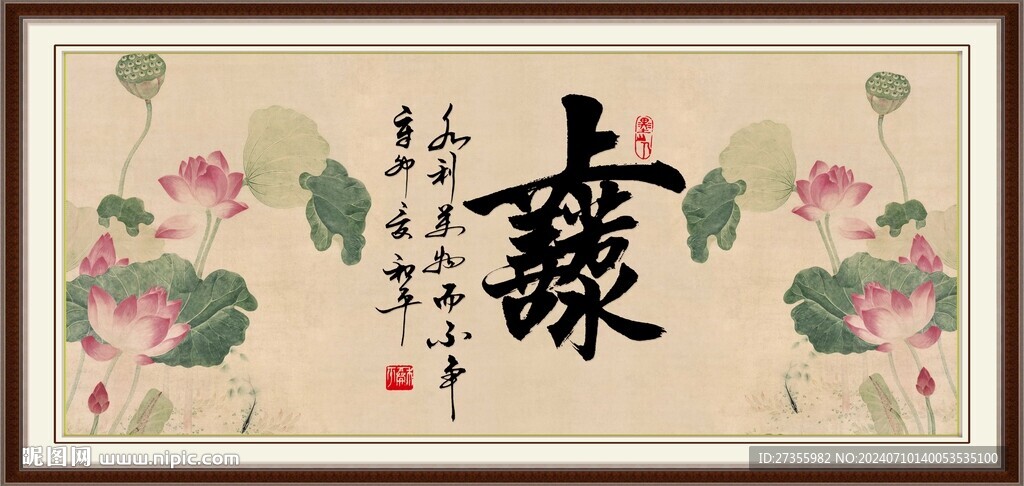 上善若水
水利萬物而不争
辛卯夏和平
昵图网 www.nipic.com
ID:27355982 NO:20240710140053535100